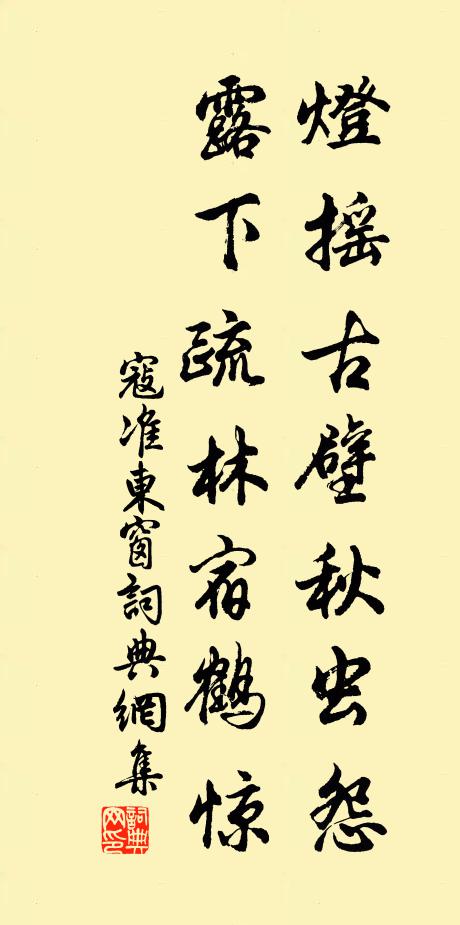 燈摇古壁秋虫怨
露下疏林宿鶴惊
寇准東窗詞典網集
詞典网印